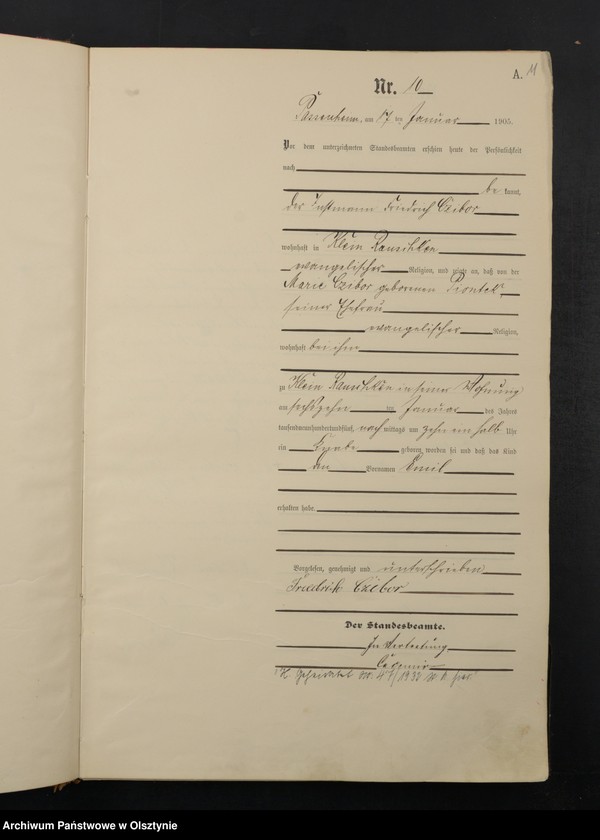 A. 11
Nr. 10
Passenheim, am 17 ten Januar 1905.
Vor dem unterzeichneten Standesbeamten erschien heute der Persönlichkeit
nach
be kannt,
der Instmann Friedrich Czibor
wohnhaft in Klein Rauschken
evangelischer Religion, und zeigte an, daß von der
Marie Czibor geborenen Piontek,
seiner Ehefrau
evangelischer Religion,
wohnhaft bei ihm
zu Klein Rauschken in seiner Wohnung
am sechszehn ten Januar des Jahres
tausendneunhundertundfünf, nach mittags um zehn ein halb Uhr
ein Knabe geboren worden sei und daß das Kind
den Vornamen Emil
erhalten habe.
Vorgelesen, genehmigt und unterschrieben
Friedrich Czibor
Der Standesbeamte.
In Vertretung
Geheiratet Nr. 4 /1933
Archiwum Państwowe w Olsztynie